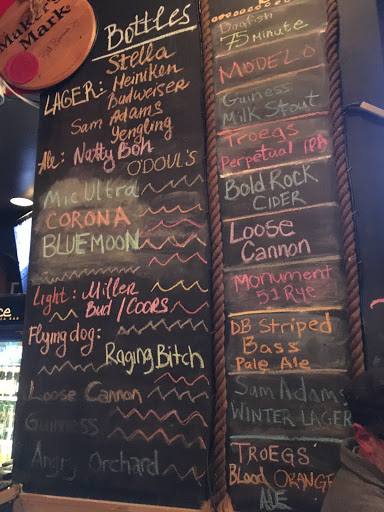 Maker's
Mark
Bottles
LAGER: Stella
Heiniken
Budweiser
Sam Adams
Yengling
Ale: Natty Boh
O'DOUL'S
Mic Ultra
CORONA
BLUEMOON
Light: Miller
Bud/COORS
Flying dog:
Raging Bitch
Loose Cannon
Guinness
Angry Orchard
Dogfish
75 Minute
MODELO
Guiness
Milk Stout
Troegs
Perpetual IPA
BOLD ROCK
CIDER
Loose
Cannon
Monument
51 Rye
DB Striped
Bass
Pale Ale
Sam Adams
WINTER LAGER
TROEGS
Blood ORANGE
ALE